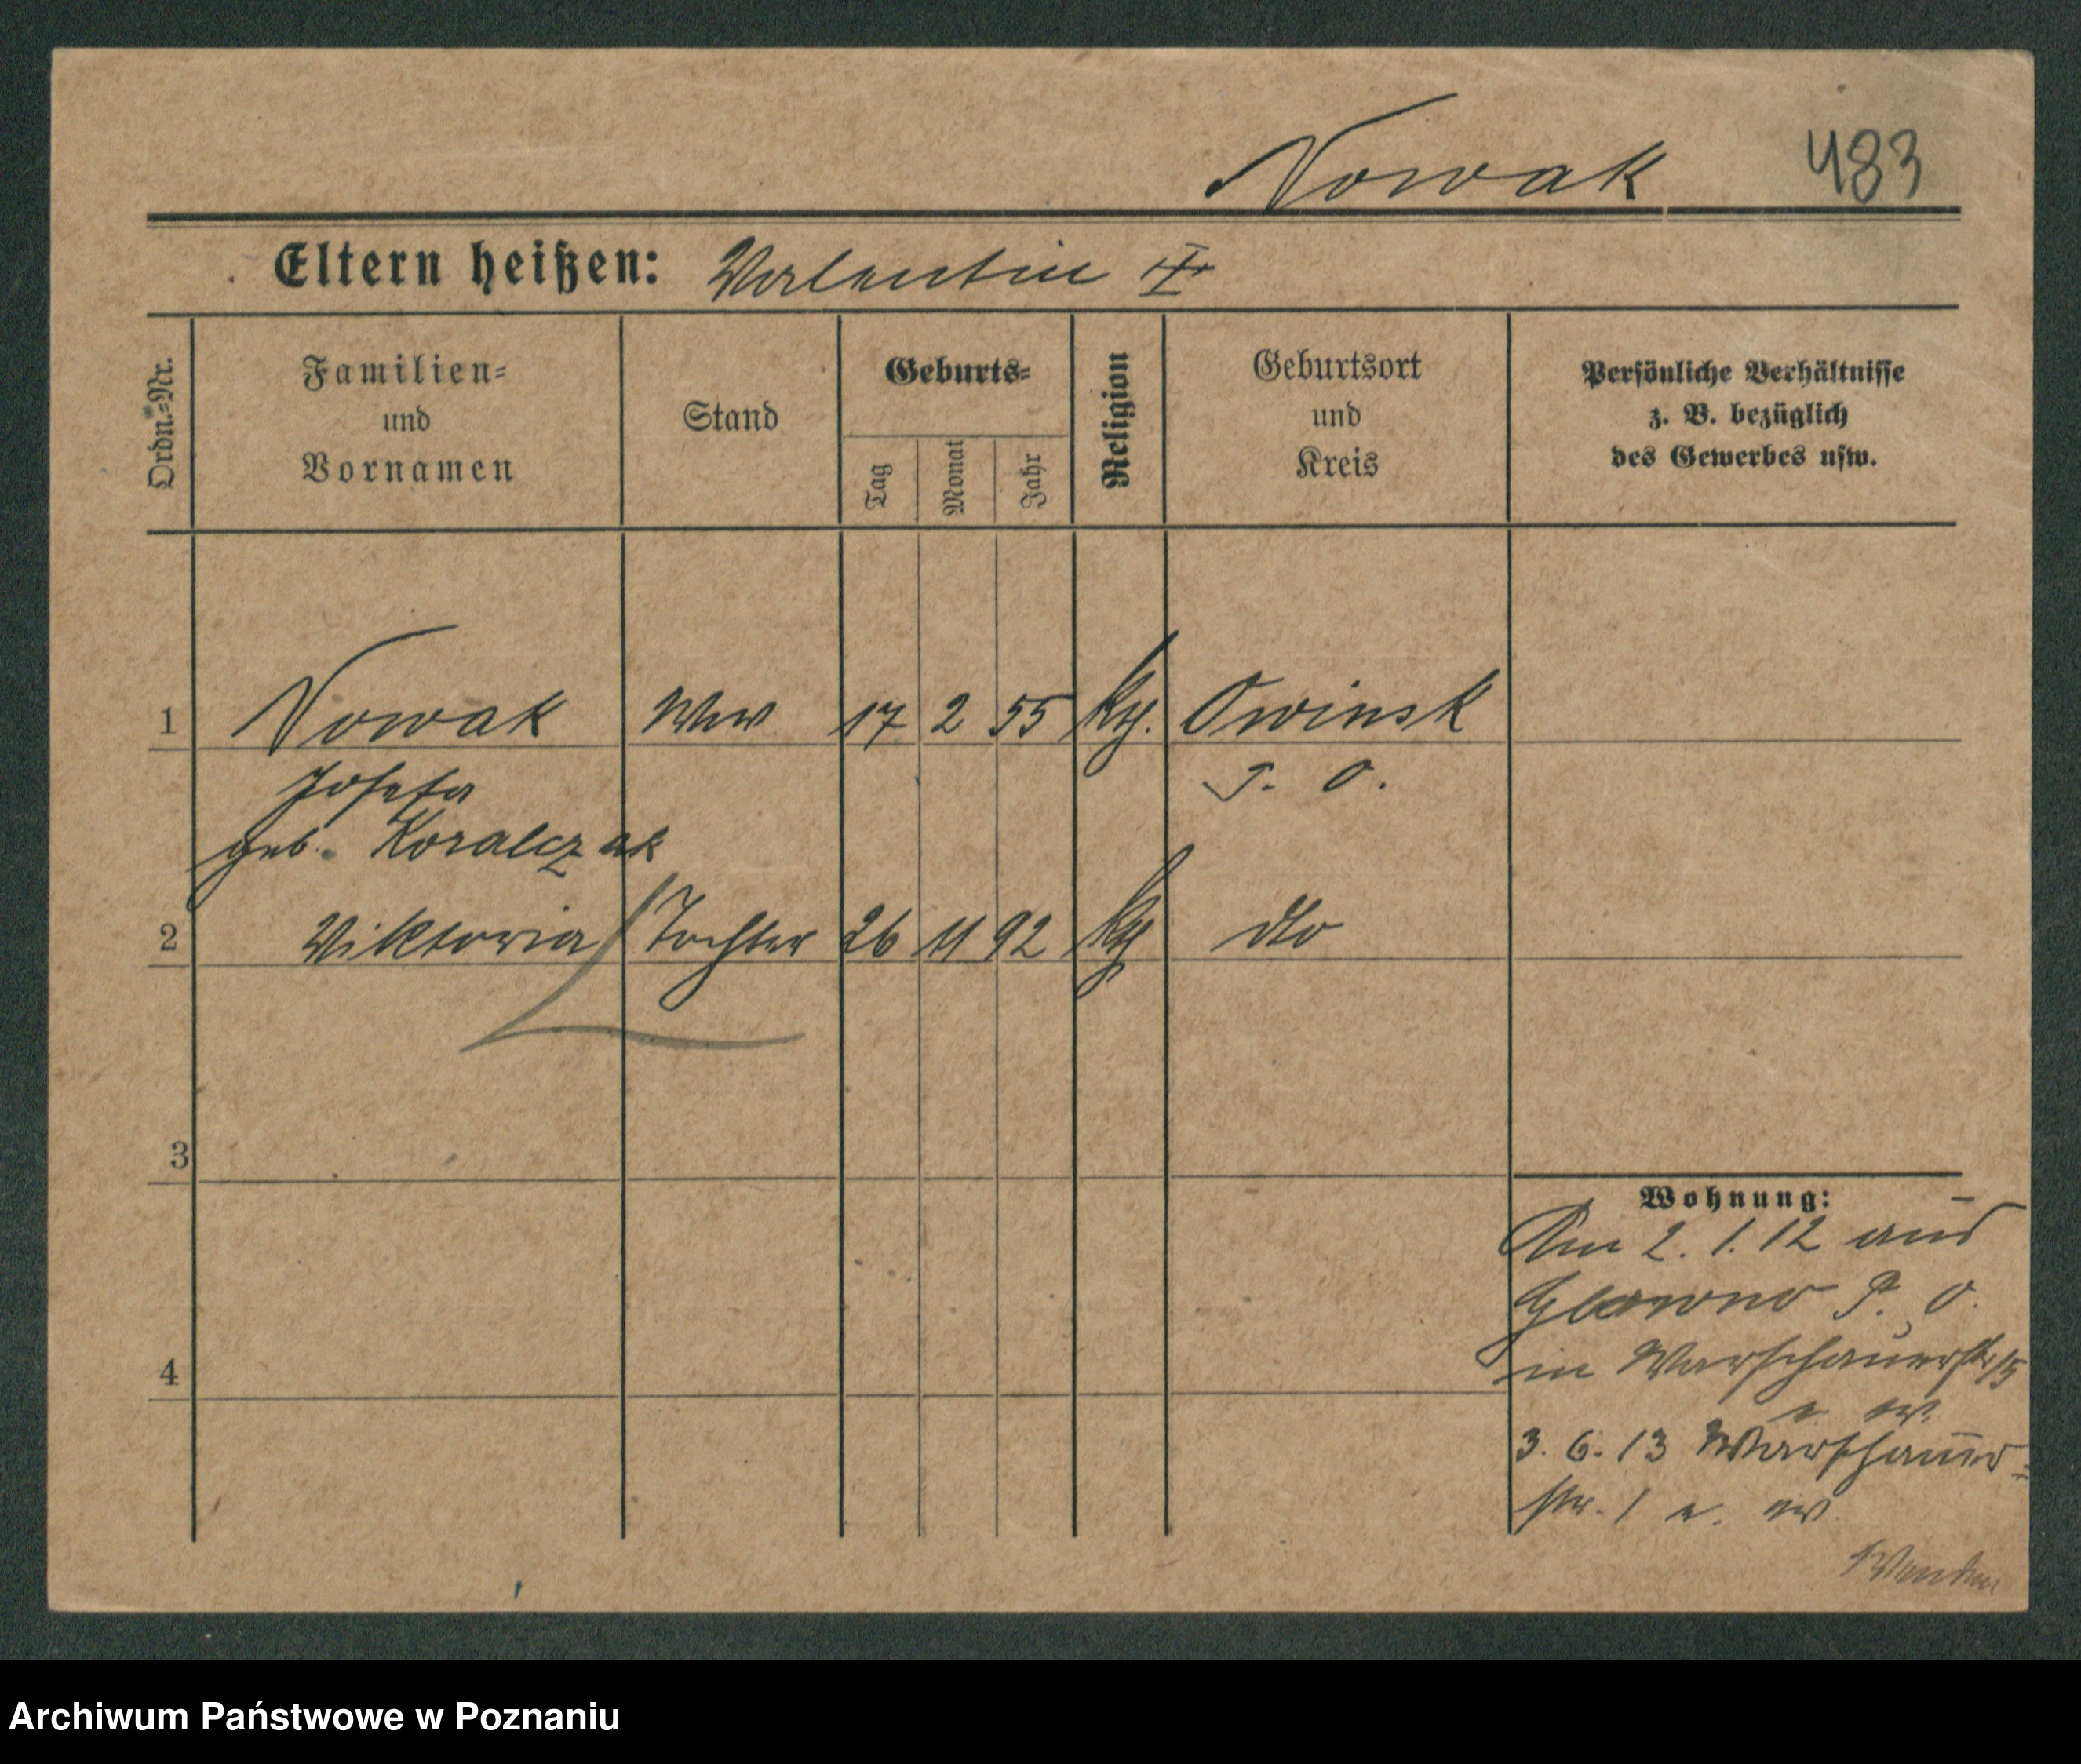 Nowak 483
Eltern heißen: Valentin
Ordn.-Nr.
Familien-
und
Vornamen
Stand
Geburts-
Tag
Monat
Jahr
Religion
Geburtsort
und
Kreis
Persönliche Verhältnisse
z. B. bezüglich
des Gewerbes usw.
1 Nowak Ww 17 2 55 Owinsk
Josefa P. O.
geb. Koralczak
2 Viktoria Tochter 26 11 92 dto
3
4
Wohnung:
Am 2. 1. 12 aus
Glowno P. O.
in Warschauerstr 15
3. 6. 13 Warschauer-
str. 1
Wenden
Archiwum Państwowe w Poznaniu